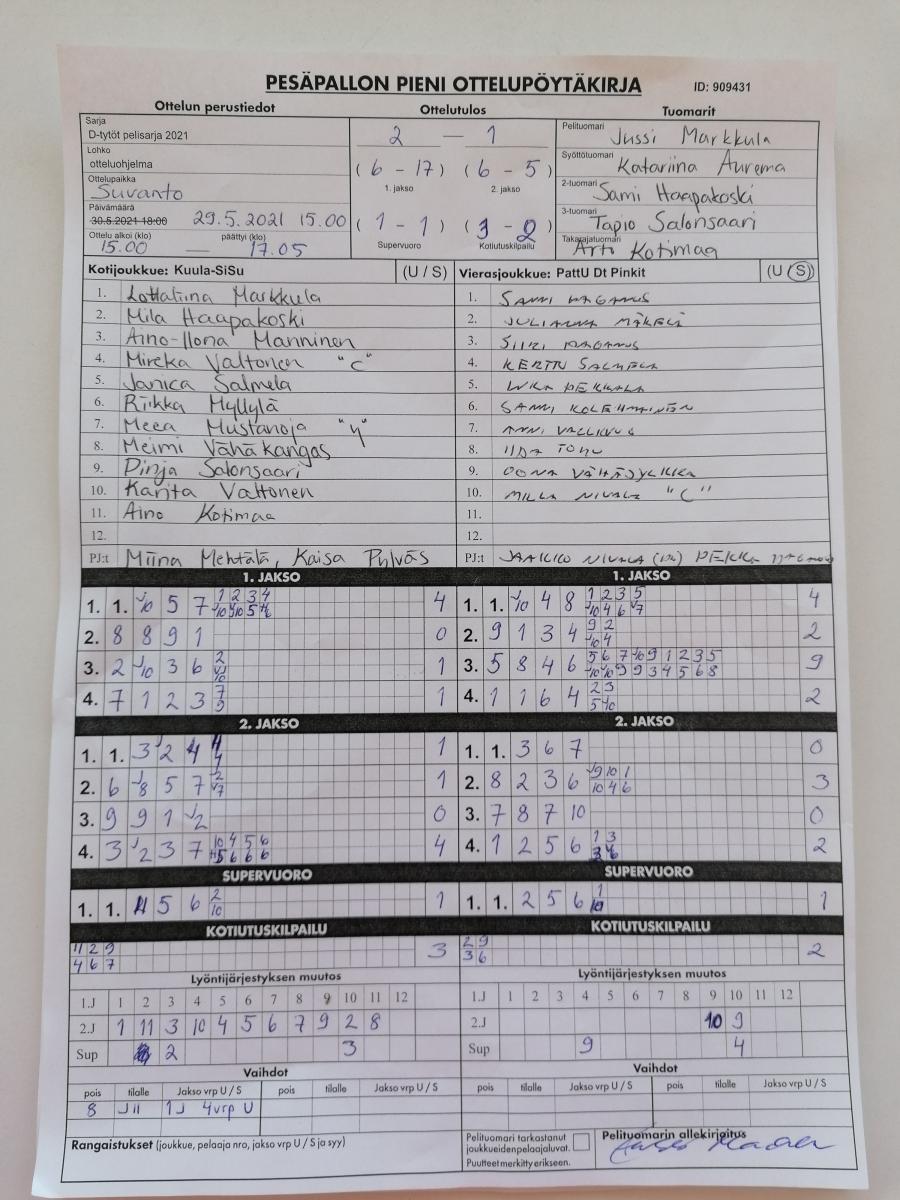 PESÄPALLON PIENI OTTELUPÖYTÄKIRJA ID: 909431
Ottelun perustiedot Ottelutulos Tuomarit
Sarja
D-tytöt pelisarja 2021
Lohko
otteluohjelma
Ottelupaikka
Suvanto
Päivämäärä
30.5.2021 18:00 29.5.2021 15.00
Ottelu alkoi (klo) päättyi (klo)
15.00 — 17.05
2 — 1
(6 - 17) (6 - 5)
1. jakso 2. jakso
(1 - 1) (3 - 2)
Supervuoro Kotiutuskilpailu
Pelituomari Jussi Markkula
Syöttötuomari Katariina Aurema
2-tuomari Sami Haapakoski
3-tuomari Tapio Salonsaari
Takarajatuomari Arto Kotimaa
Kotijoukkue: Kuula-SiSu (U / S)
1. Lottaliina Markkula
2. Mila Haapakoski
3. Aino-Ilona Manninen
4. Mireka Valtonen "C"
5. Janica Salmela
6. Riikka Myllylä
7. Meea Mustanoja
8. Meimi Vähäkangas
9. Pinja Salonsaari
10. Karita Valtonen
11. Aino Kotimaa
12.
PJ:t Miina Mehtälä, Kaisa Pylväs
Vierasjoukkue: PattU Dt Pinkit (U / S)
1. SANNI
2. JULIANNA MÄKELÄ
3. SIIRI
4. KERTTU
5.
6. SANNI KOLEHMAINEN
7. ANNI
8. IIDA
9. OONA VÄHÄJYLKKÄ
10. MILLA NIVALA "C"
11.
12.
PJ:t JAAKKO NIVALA PEKKA
1. JAKSO
1. 1. 10 5 7 4
2. 8 8 9 1 0
3. 2 10 3 6 1
4. 7 1 2 3 1
1. JAKSO
1. 1. 10 4 8 4
2. 9 1 3 4 2
3. 5 8 4 6 9
4. 1 1 6 4 2
2. JAKSO
1. 1. 3 2 4 1
2. 6 8 5 7 1
3. 9 9 1 2 0
4. 3 2 3 7 4
2. JAKSO
1. 1. 3 6 7 0
2. 8 2 3 6 3
3. 7 8 7 10 0
4. 1 2 5 6 2
SUPERVUORO
1. 1. 4 5 6 1
SUPERVUORO
1. 1. 2 5 6 1
KOTIUTUSKILPAILU
11 2 9
4 6 7
3
KOTIUTUSKILPAILU
2 9
3 6
2
Lyöntijärjestyksen muutos
1.J 1 2 3 4 5 6 7 8 9 10 11 12
2.J 1 11 3 10 4 5 6 7 9 2 8
Sup 2 3
Lyöntijärjestyksen muutos
1.J 1 2 3 4 5 6 7 8 9 10 11 12
2.J 10 9
Sup 9 4
Vaihdot
pois tilalle Jakso vrp U / S pois tilalle Jakso vrp U / S
8 J11 1J 4vrp U
Vaihdot
pois tilalle Jakso vrp U / S pois tilalle Jakso vrp U / S
Rangaistukset (joukkue, pelaaja nro, jakso vrp U / S ja syy)
Pelituomari tarkastanut
joukkueidenpelaajaluvat.
Puutteet merkitty erikseen.
Pelituomarin allekirjoitus